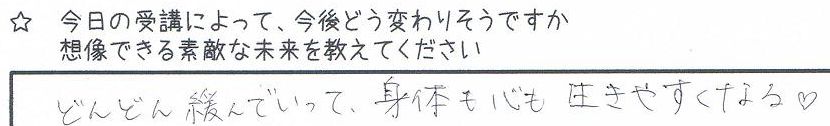 ☆ 今日の受講によって、今後どう変わりそうですか
想像できる素敵な未来を教えてください
どんどん緩んでいって、身体も心も生きやすくなる♡